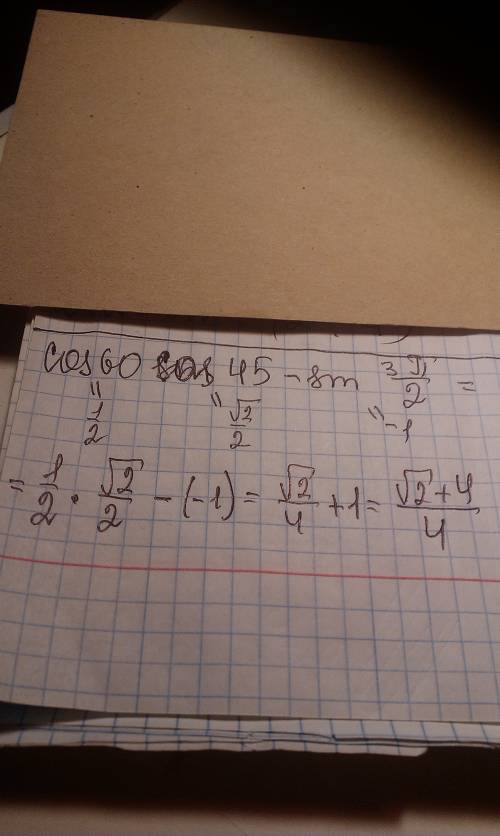 cos 60 cos 45 - sin 3π/2 =
= 1/2 = √2/2 = -1
= 1/2 · √2/2 - (-1) = √2/4 + 1 = (√2 + 4)/4